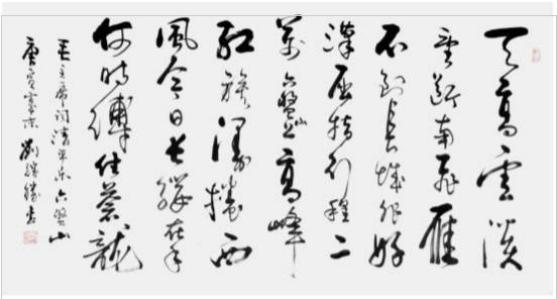 天高雲淡
望断南飛雁
不到長城非好
漢屈指行程二
萬六盤山上高峰
紅旗漫捲西
風今日長纓在手
何時縛住蒼龍
毛主席詞清平樂六盤山
庚寅 劉 書